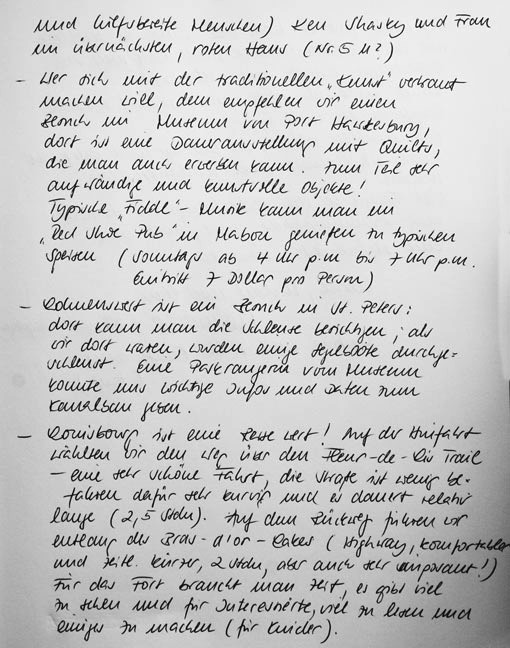 und hilfsbereite Menschen) Ken Sharky und Frau
im übernächsten, roten Haus (Nr. 5 M?)
- Wer sich mit der traditionellen „Kunst" vertraut
machen will, dem empfehlen wir einen
Besuch im Museum von Port Hawkesbury,
dort ist eine Dauerausstellung mit Quilts,
die man auch erwerben kann. Zum Teil sehr
aufwändige und kunstvolle Objekte!
Typische „Fiddle"- Musik kann man im
„Red Shoe Pub" in Mabou genießen zu typischen
Speisen (Sonntags ab 4 Uhr p.m. bis 7 Uhr p.m.
Eintritt 7 Dollar pro Person)
- Lohnenswert ist ein Besuch in St. Peters:
dort kann man die Schleuse besichtigen; als
wir dort waren, wurden einige Segelboote durchge-
schleust. Eine Parkrangerin vom Museum
konnte uns wichtige Infos und Daten zum
Kanalbau geben.
- Louisbourg ist eine Reise wert! Auf der Hinfahrt
wählten wir den Weg über den Fleur-de-Lis Trail
- eine sehr schöne Fahrt, die Straße ist wenig be-
fahren dafür sehr kurvig und es dauert relativ
lange (2,5 Stdn). Auf dem Rückweg fuhren wir
entlang des Bras-d'or-Lakes (Highway, komfortabler
und zeitl. kürzer, 2 Stdn, aber auch sehr imposant!)
Für das Fort braucht man Zeit, es gibt viel
zu sehen und für Interessierte, viel zu lesen und
einiges zu machen (für Kinder).